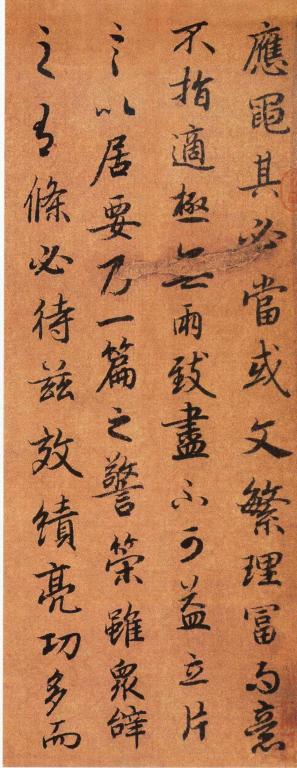 應黽其必當或文繁理冨而意
不指適極無兩致盡不可益立片
言以居要乃一篇之警策雖眾辭
之有條必待茲效績亮功多而